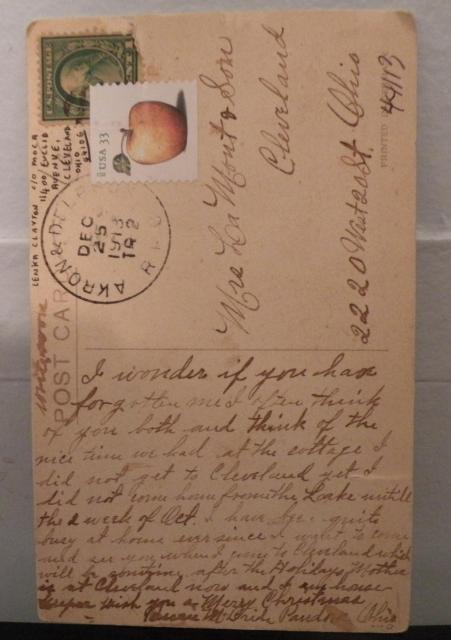 U.S. POSTAGE
USA 33
LENKA CLAYTON C/O MOCA
11400 EUCLID
AVENUE,
CLEVELAND
OHIO
44106
AKRON & DELA
DEC
25
1913
TR 2
R.P.O.
POST CAR
PRINTED
Mrs La Mont & Son
Cleveland
2220 West 20 St. Ohio
44113
I wonder if you have
forgotten me I often think
of you both and think of the
nice time we had at the cottage I
did not get to Cleveland yet I
did not come home from the Lake untill
the 2 week of Oct. I have quite
busy at home ever since I want to come
and see you when I come to Cleveland which
will be sometime after the Holidays Mother
is at Cleveland now and I am house
keeper wish you a Merry Christmas
Pandora Ohio